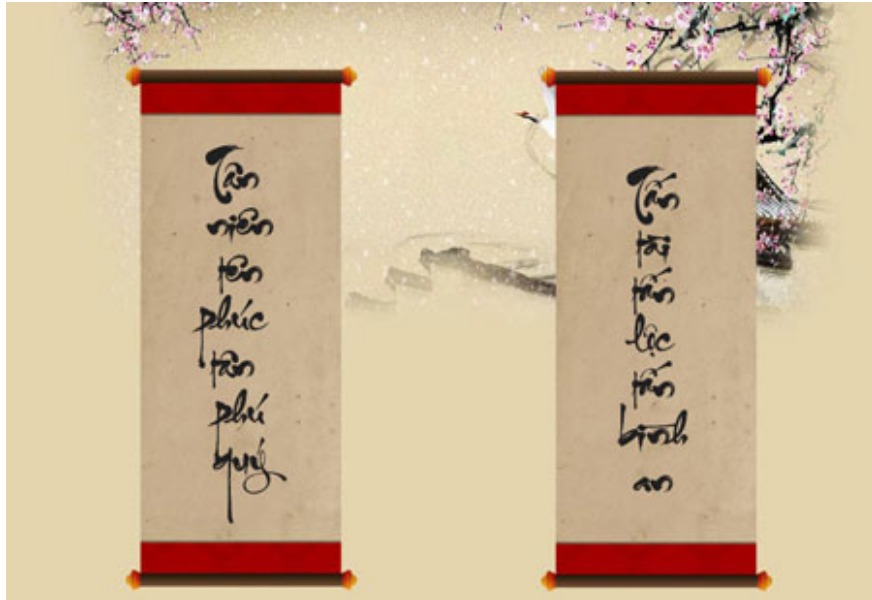 Tân
niên
tân
phúc
tân
phú
quý
Tấn
tài
tấn
lộc
tấn
bình
an